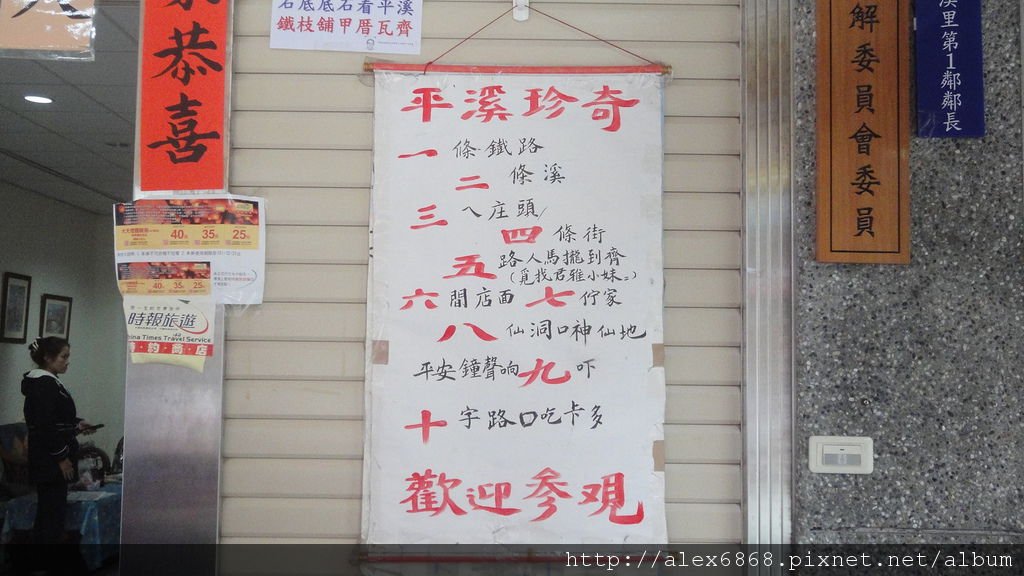 恭
喜
石底底石看平溪
鐵枝舖甲厝瓦齊
平溪珍奇
一條鐵路
二條溪
三ㄟ庄頭
四條街
五路人馬攏到齊
(覓找君雅小妹=)
六間店面七佇家
八仙洞口神仙地
平安鐘聲响九吓
十字路口吃卡多
歡迎參观
解委員會委員
溪里第1鄰鄰長
40
35
25
40
35
25
時報旅遊
China Times Travel Service
特·約·商·店
http://alex6868.pixnet.net/album